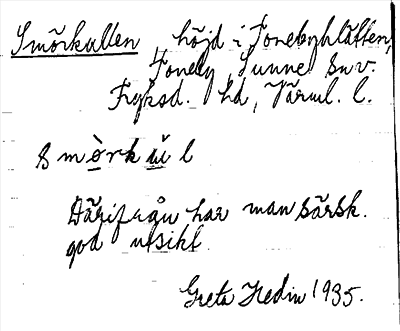 Smörkullen, höjd i Tonebyklätten,
Toneby, Sunne sn v.
Fryksd. hd, Värml. l.
smòrkùl
Därifrån har man särsk.
god utsikt
Greta Hedin 1935.